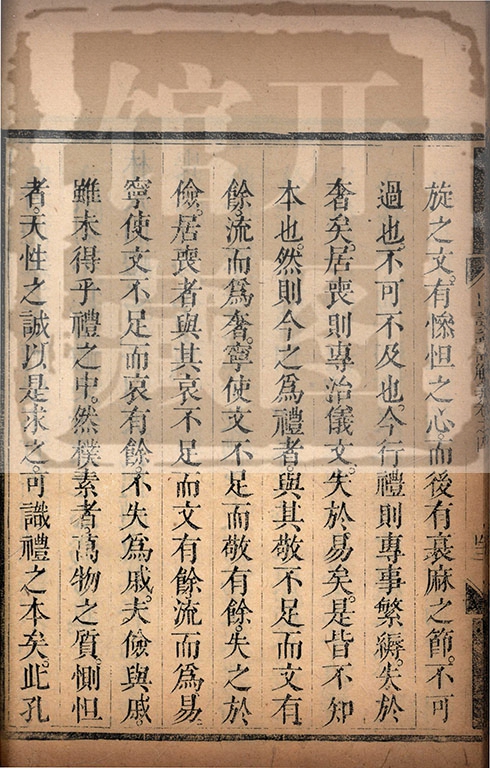 旋之文。有慘怛之心。而後有衰麻之節。不可
過也。不可不及也。今行禮則專事繁縟。失於
奢矣。居喪則專治儀文。失於易矣。是皆不知
本也。然則今之為禮者。與其敬不足而文有
餘。流而為奢。寧使文不足而敬有餘。失之於
儉。居喪者與其哀不足而文有餘流而為易
寧使文不足而哀有餘。不失為戚。夫儉與戚。
雖未得乎禮之中。然樸素者。萬物之質。惻怛
者。天性之誠以是求之。可識禮之本矣。此孔